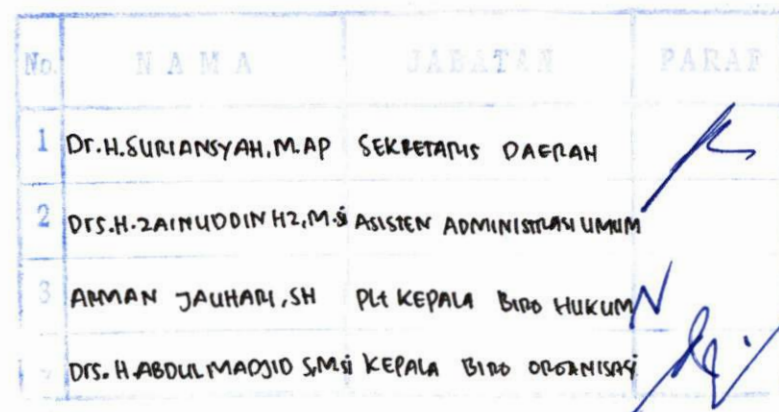 No. N A M A JABATAN PARAF
1 Dr. H. SURIANSYAH, M.AP SEKRETARIS DAERAH
2 Drs. H. ZAINUDDIN HZ, M.Si ASISTEN ADMINISTRASI UMUM
3 ARMAN JAUHARI, SH Plt KEPALA BIRO HUKUM
Drs. H. ABDUL MADJID S, M.Si KEPALA BIRO ORGANISASI